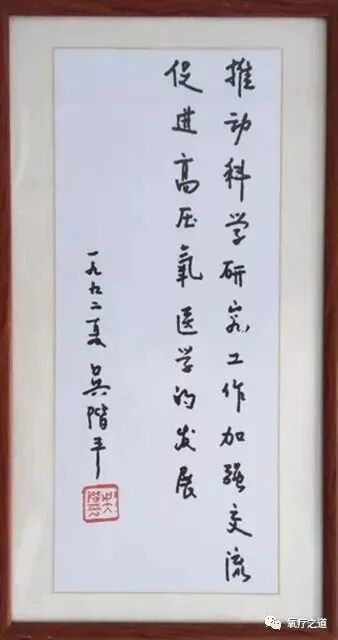 推动科学研究工作加强交流
促进高压氧医学的发展
一九九二夏 吴阶平
吴阶平
氧疗之道